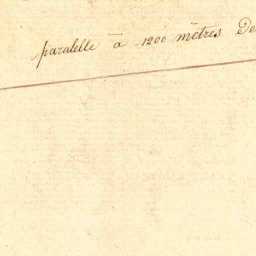 paralelle à 1200 mètres De